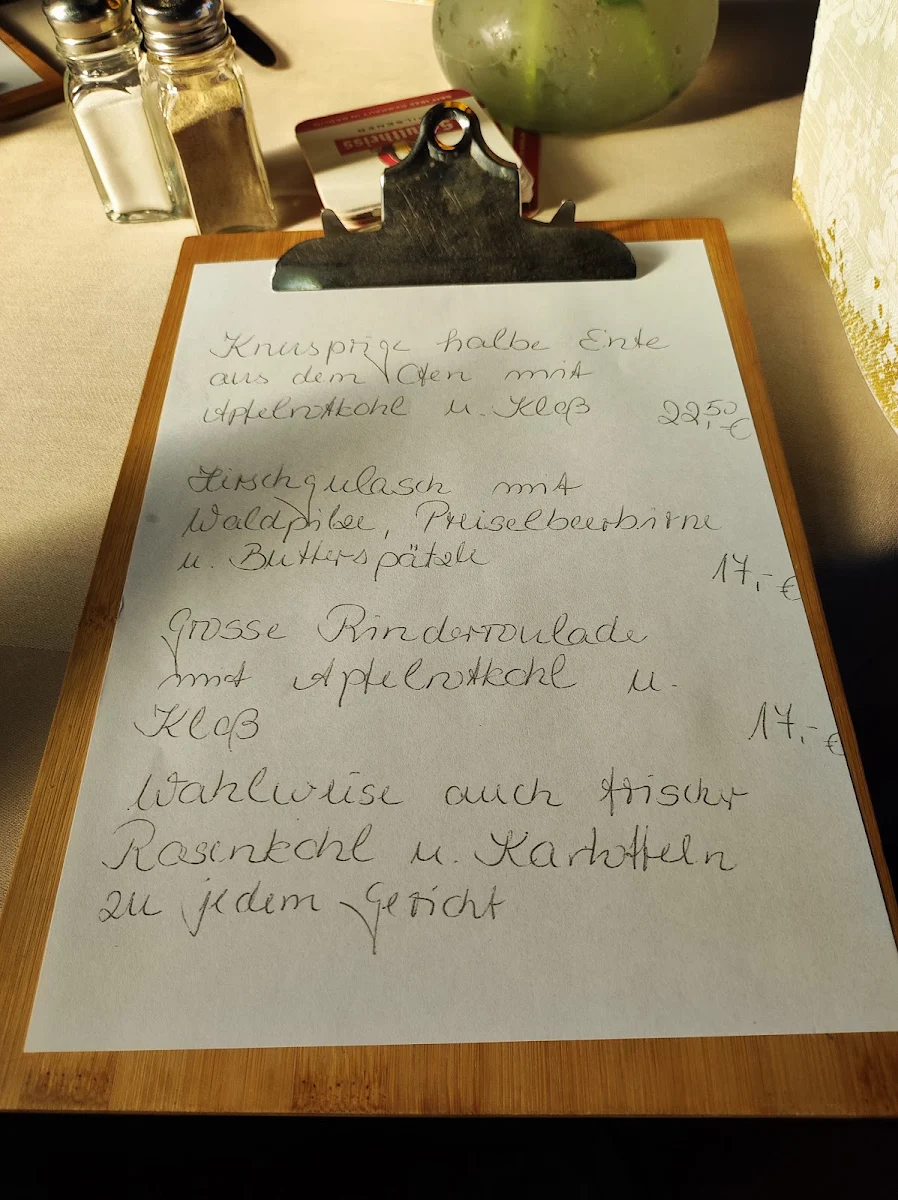 SEIT 1842 DAHEIM IN BERLIN
PILSENER
Schultheiss
Knusprige halbe Ente
aus dem Ofen mit
Apfelrotkohl u. Kloß 22,50 €
Hirschgulasch mit
Waldpilze, Preiselbeerbirne
u. Butterspätzle
17,- €
Grosse Rinderroulade
mit Apfelrotkohl u.
Kloß 17,- €
Wahlweise auch frischer
Rosenkohl u. Kartoffeln
zu jedem Gericht